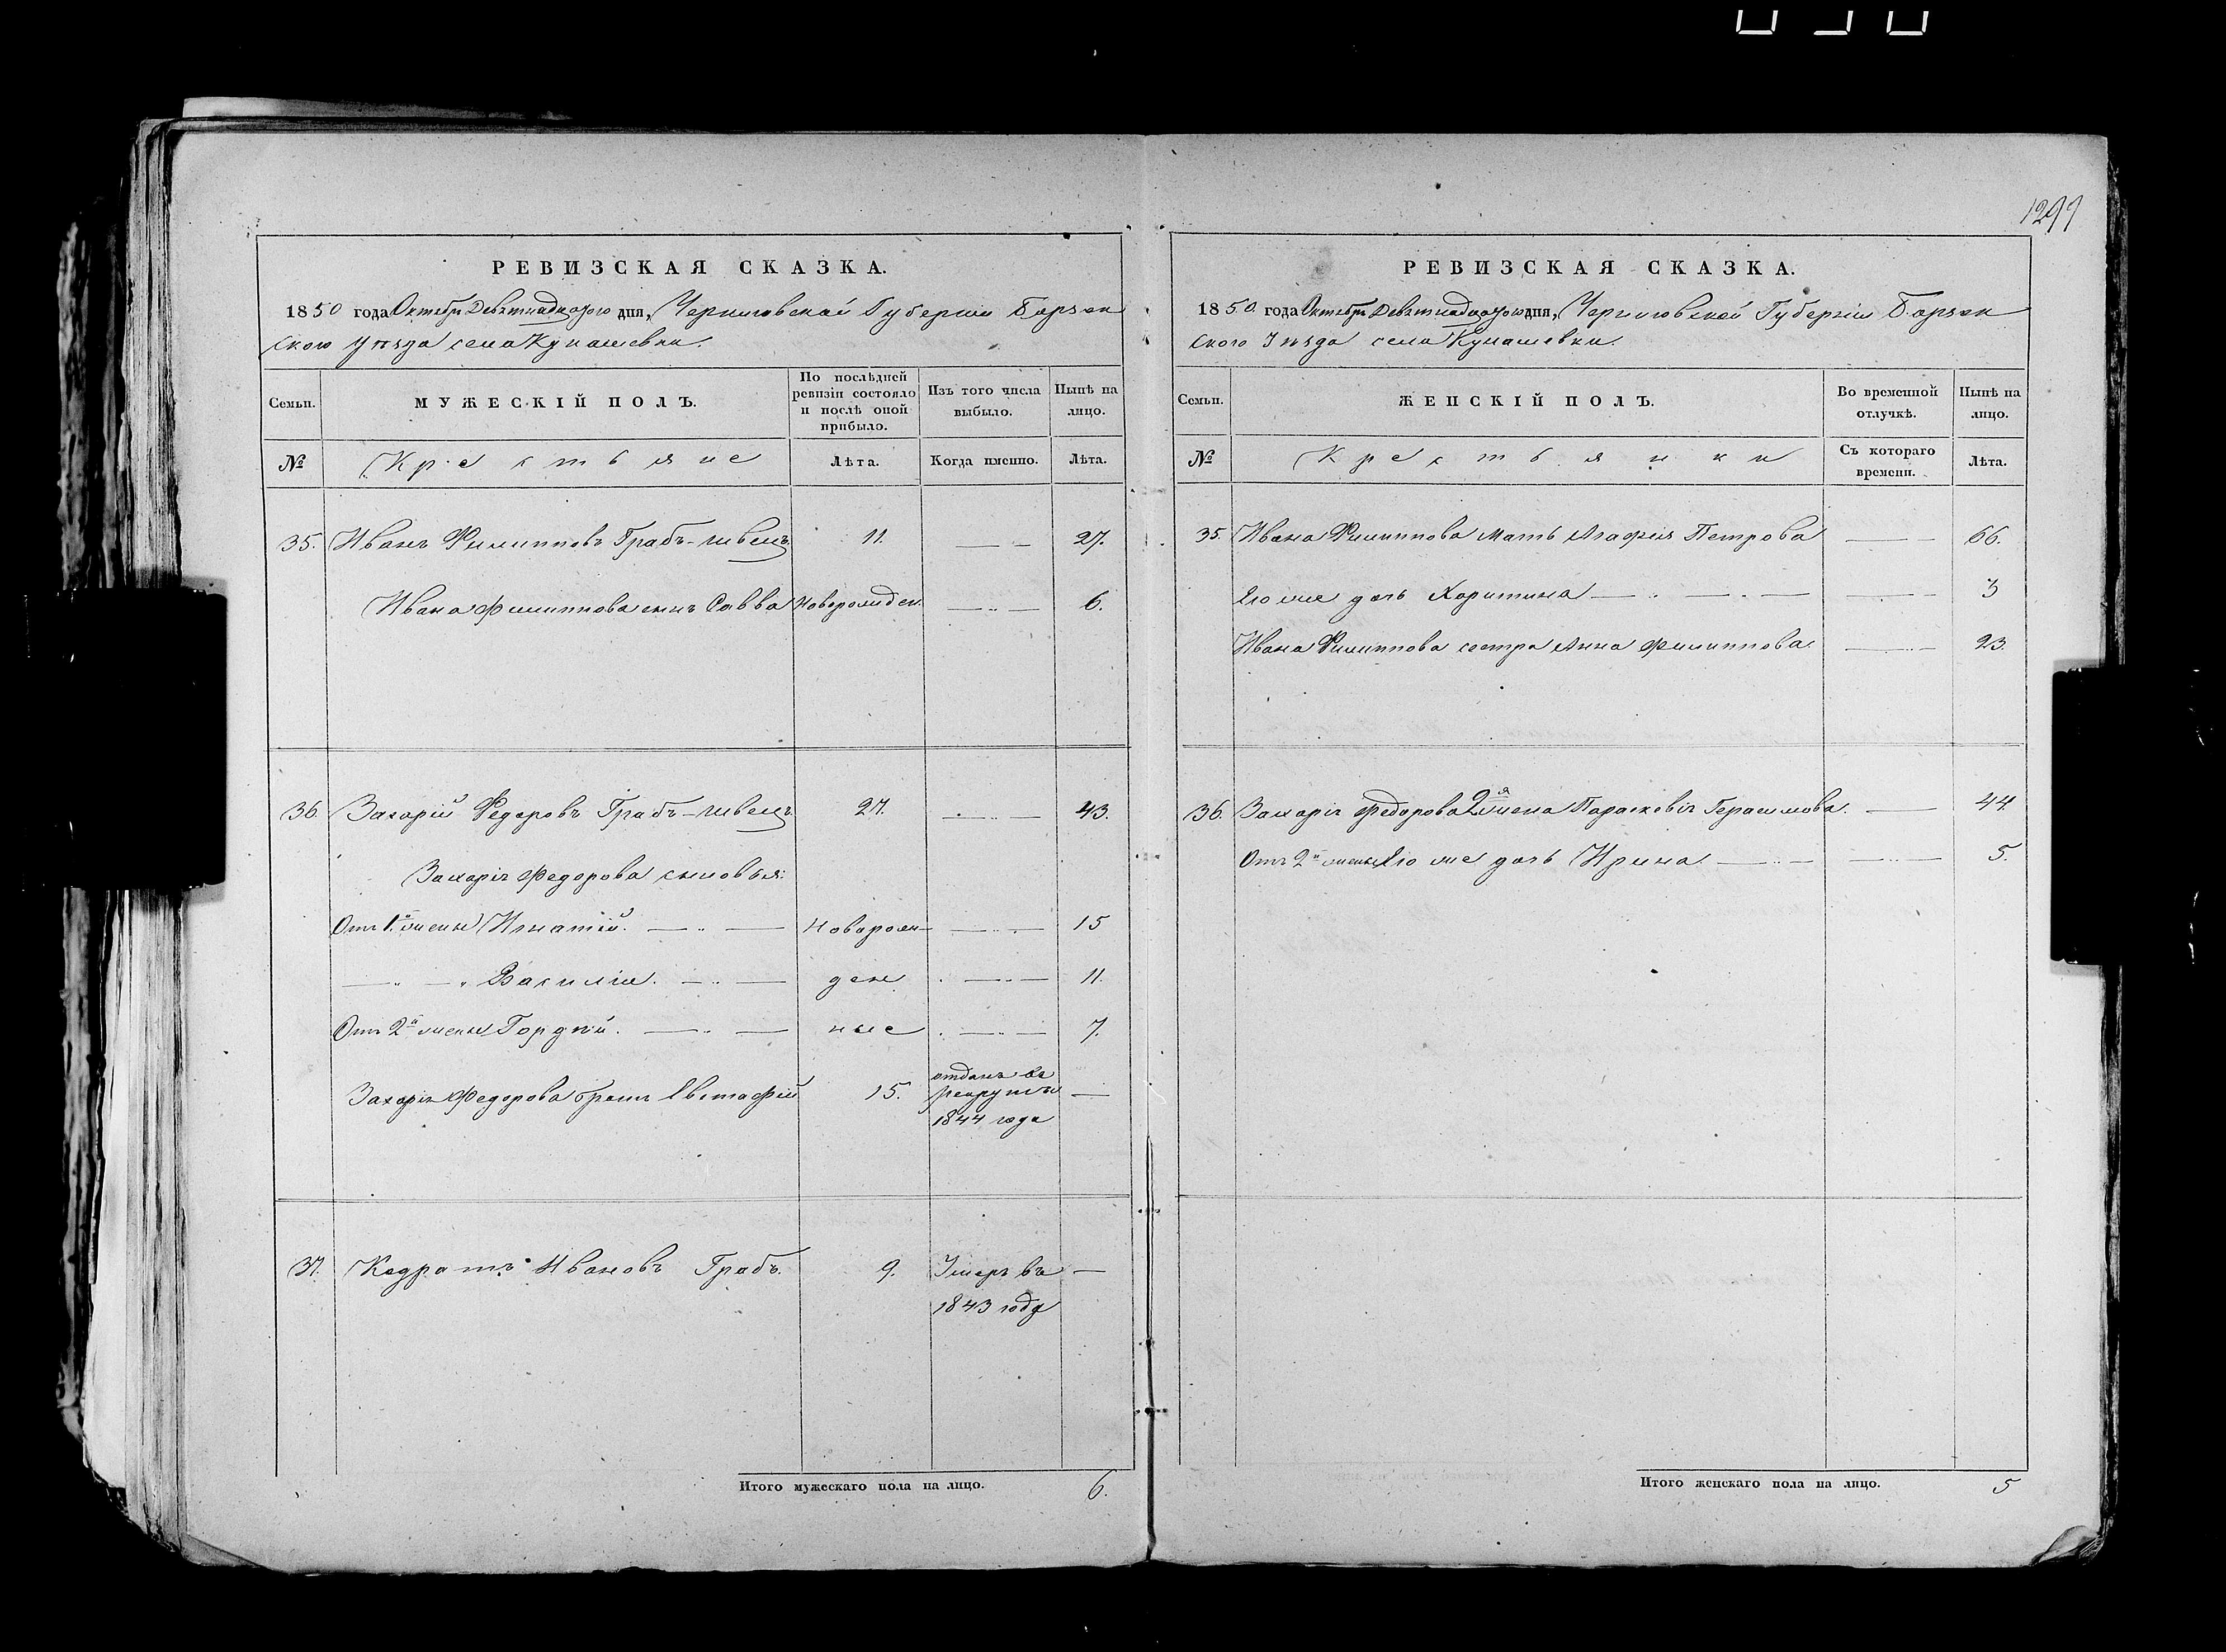 1299
РЕВИЗСКАЯ СКАЗКА.
1850 года Октября Девятнадцатого дня, Черниговской Губернии Борзен
ского Уѣзда села Кунашевки.
Семьи.
МУЖЕСКІЙ ПОЛЪ.
По послѣдней ревизіи состояло и послѣ оной прибыло.
Изъ того числа выбыло.
Нынѣ на лицо.
№
Крестьяне
Лѣта.
Когда именно.
Лѣта.
35. Иванъ Филипповъ Грабъ-швецъ 11. — 27.
Ивана Филиппова сынъ Савва Новорожден. — 6.
36. Захарій Федоровъ Грабъ-швецъ. 27. — 43.
Захарія Федорова сыновья:
Отъ 1й жены Игнатій. — Новорож— — 15
— „ — „ Василій. — ден — 11.
Отъ 2й жены Гордѣй. — ные — 7.
Захарія Федорова братъ Евстафій 15. отданъ въ рекруты 1844 года —
37. Кодратъ Ивановъ Грабъ. 9. Умеръ въ 1843 году —
Итого мужескаго пола на лицо. 6.
РЕВИЗСКАЯ СКАЗКА.
1850 года Октября Девятнадцатого дня, Черниговской Губерніи Борзен
ского Уѣзда села Кунашевки.
Семьи.
ЖЕНСКІЙ ПОЛЪ.
Во временной отлучкѣ.
Нынѣ на лицо.
№
Крестьянки
Съ котораго времени.
Лѣта.
35. Ивана Филиппова мать Агафія Петрова — 66.
Его же дочь Харитина — 3
Ивана Филиппова сестра Анна Филиппова. — 23.
36. Захарія Федорова 2я жена Параскевія Герасимова. — 44
Отъ 2й жены Его же дочь Ирина. — 5.
Итого женскаго пола на лицо. 5